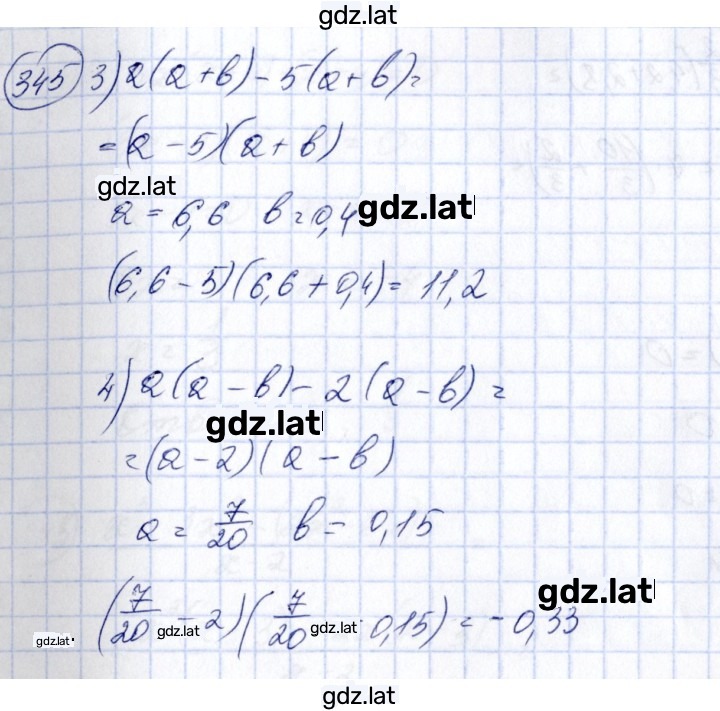 gdz.lat
345 3) a(a+b) - 5(a+b) =
= (a - 5)(a + b)
gdz.lat
a = 6,6 b = 0,4 gdz.lat
(6,6 - 5)(6,6 + 0,4) = 11,2
4) a(a - b) - 2(a - b) =
gdz.lat
= (a - 2)(a - b)
a = 7/20 b = 0,15
gdz.lat
(7/20 - 2)(7/20 - 0,15) = - 0,33
gdz.lat gdz.lat gdz.lat
gdz.lat